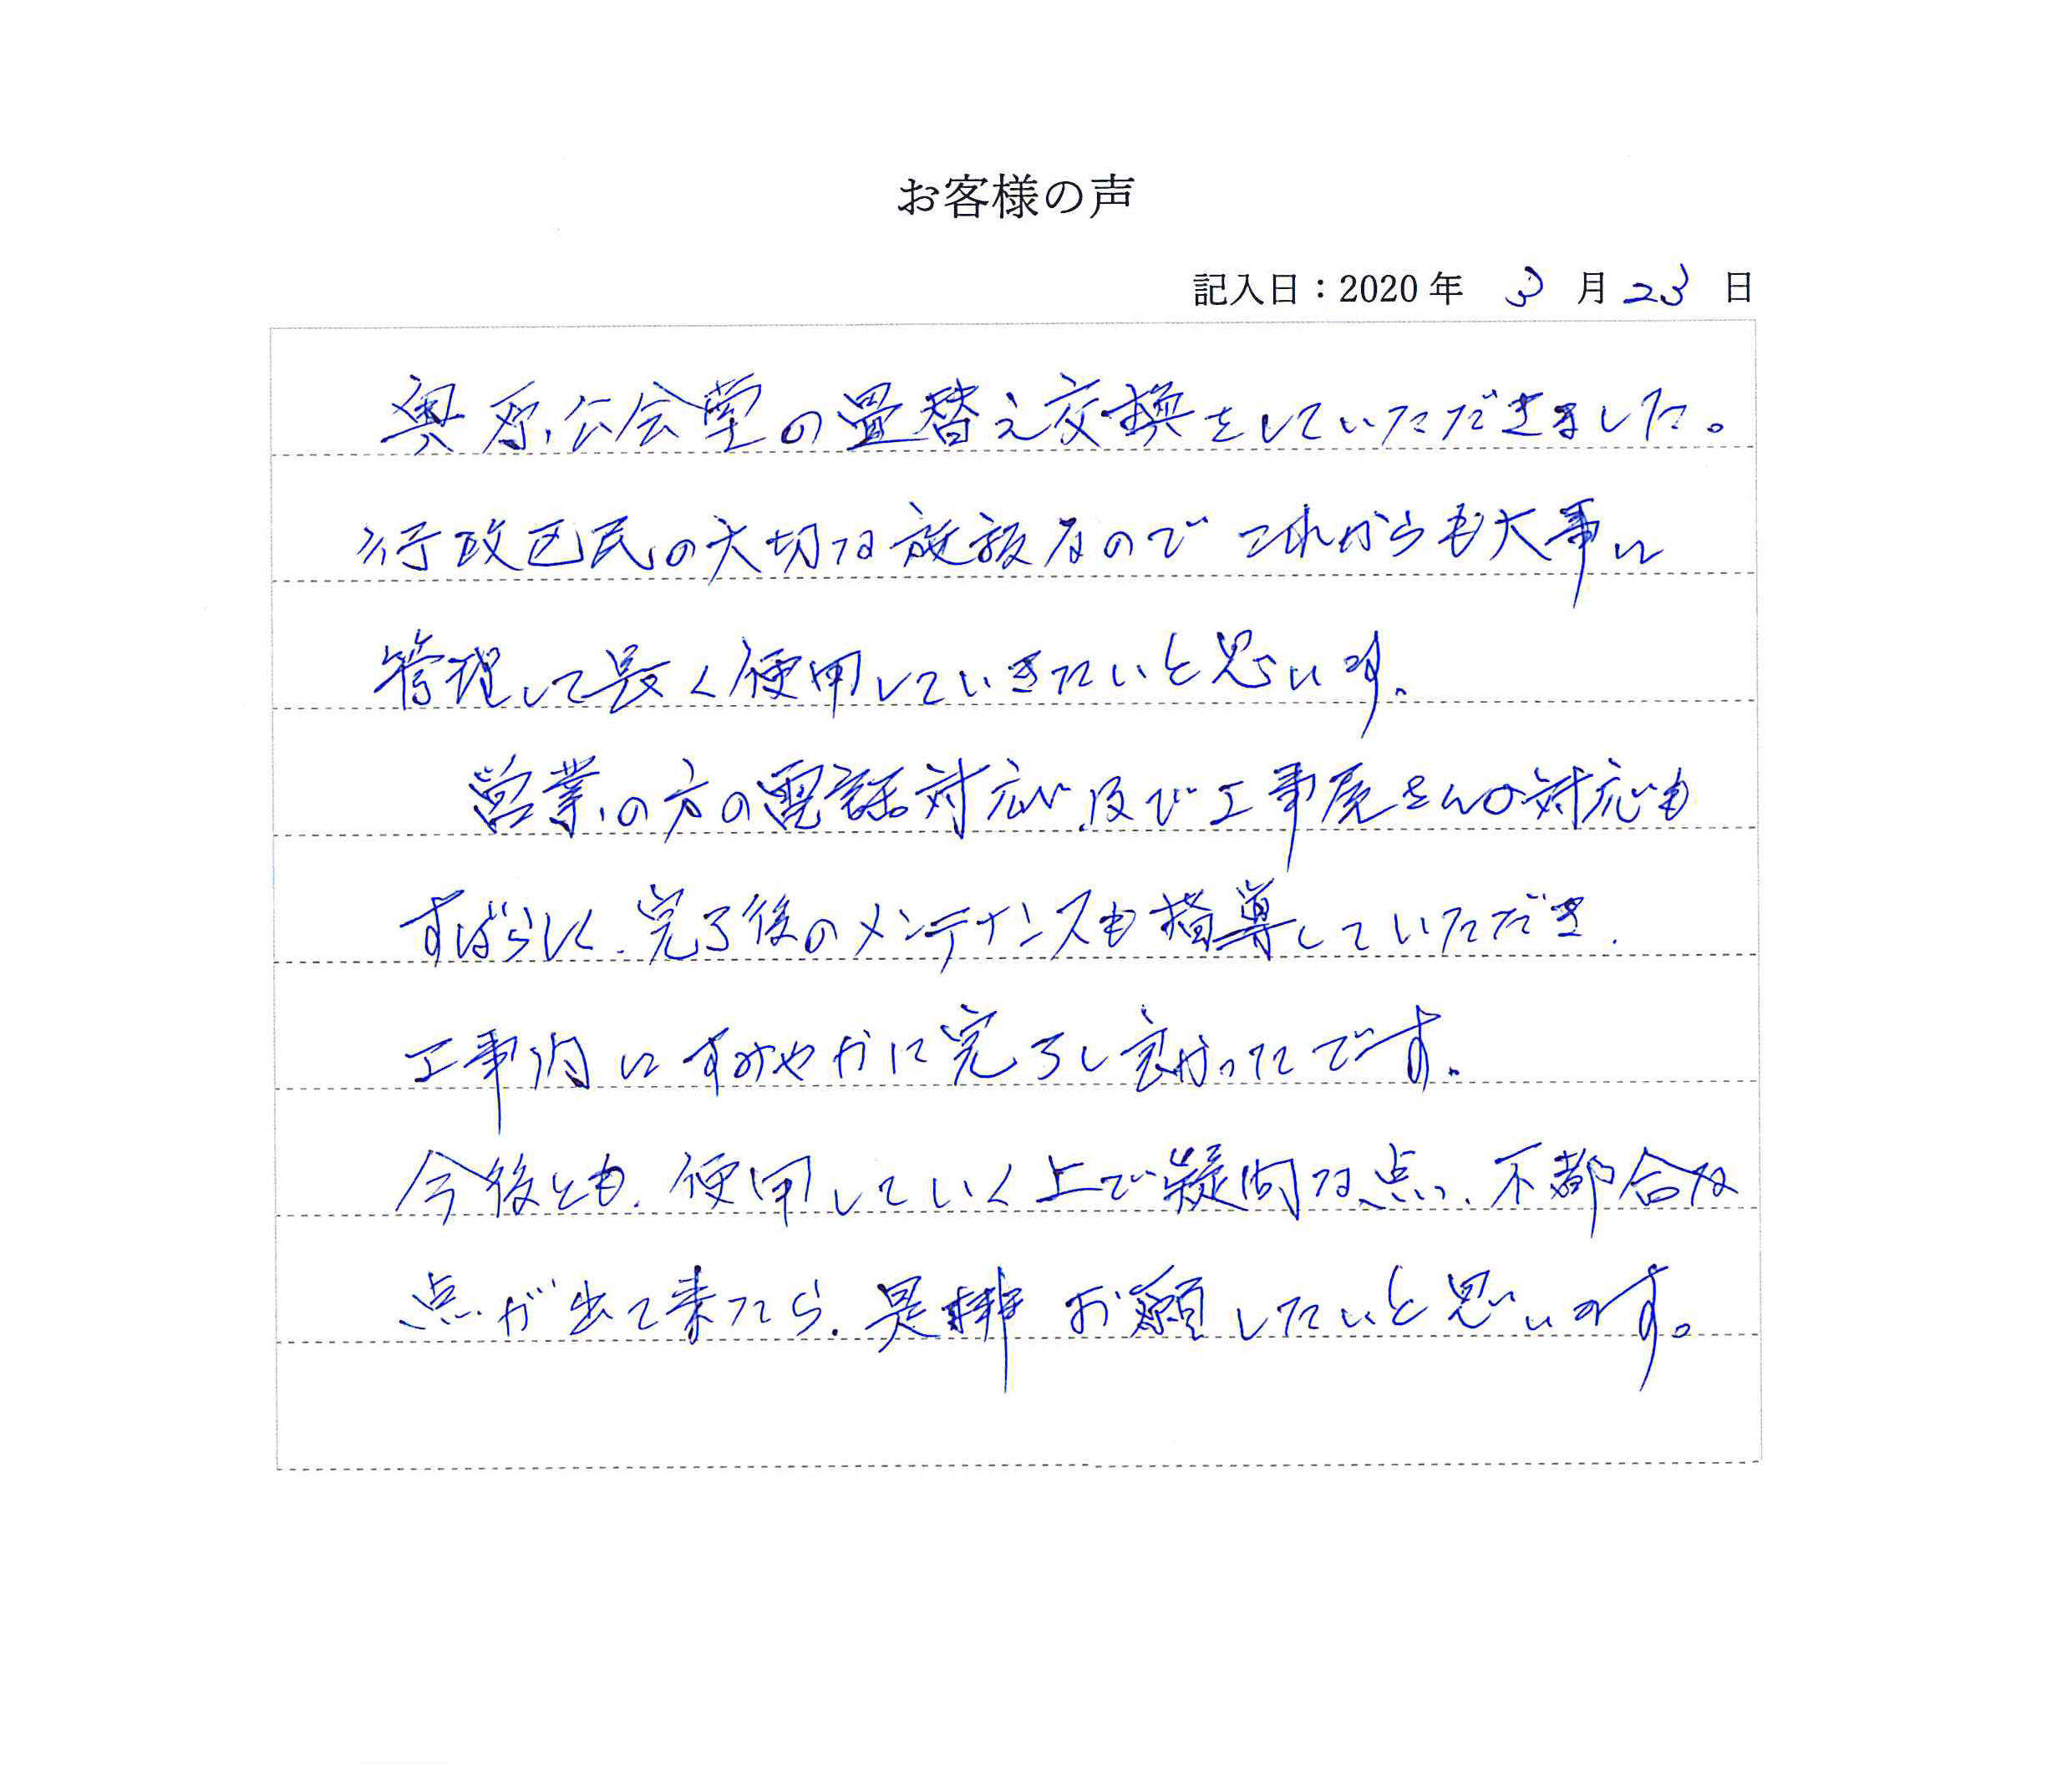 お客様の声
記入日：2020年 3 月 23 日
奥原公会堂の畳替え交換をしていただきました。
行政区民の大切な施設なので これからも大事に
管理して長く使用していきたいと思います。
営業の方の電話対応、及び工事屋さんの対応も
すばらしく、完了後のメンテナンスも指導していただき、
工事内にすみやかに完了し良かったです。
今後とも、使用していく上で疑問な点、不都合な
点が出て来たら、是非 お願したいと思います。